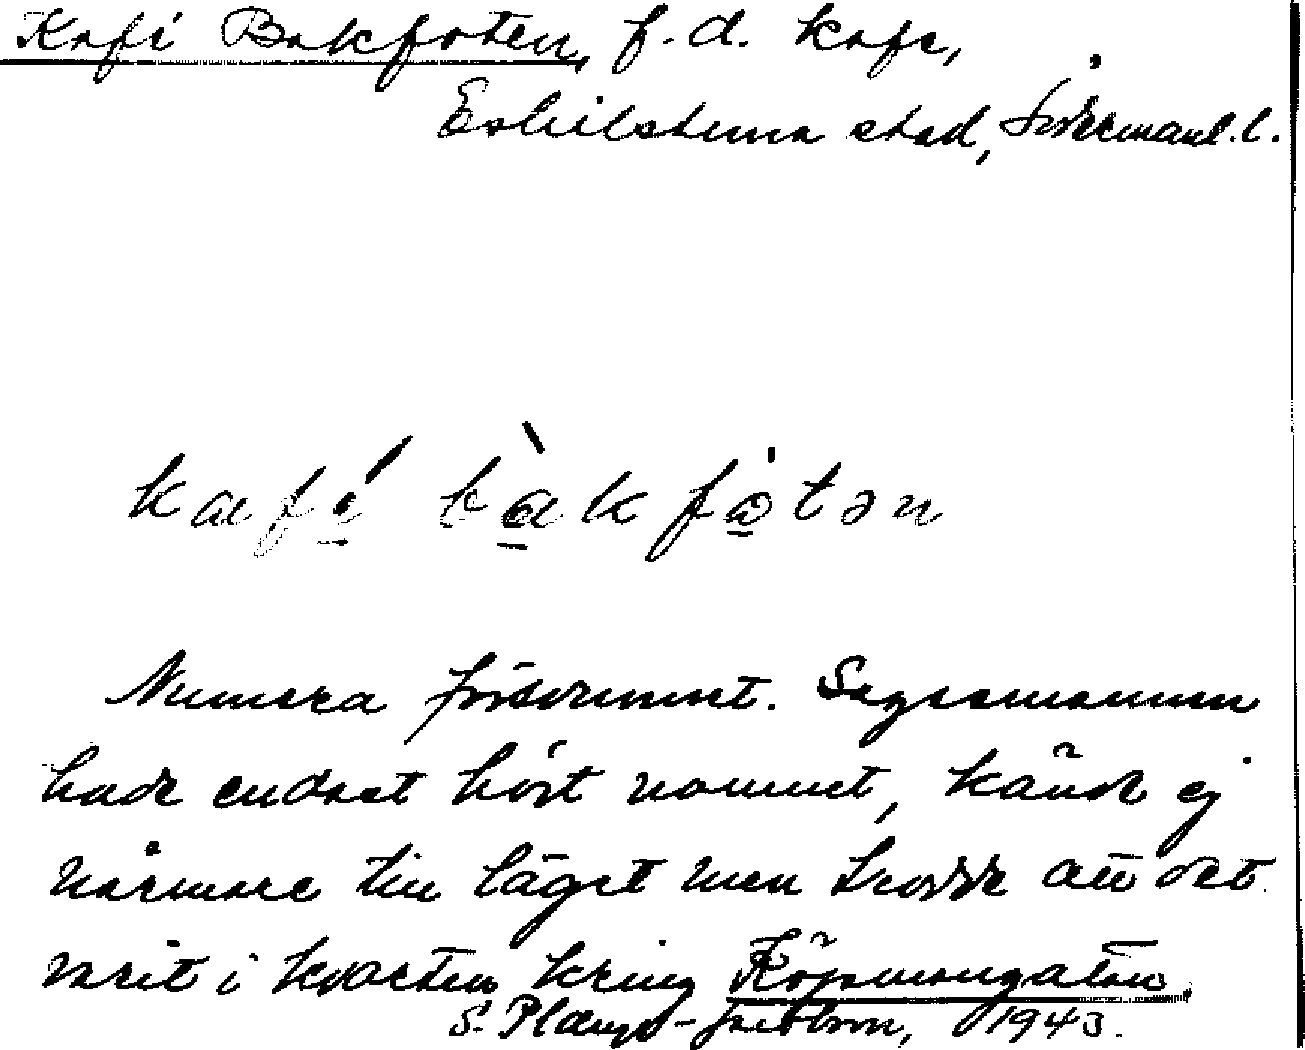 Kafé Bakfoten, f.d. kafé,
Eskilstuna stad, Södermanl. l.
kafé bàkfòtən
Numera försvunnet. Sagesmannen
hade endast hört namnet, kände ej
närmare till läget men trodde att det
varit i kvarteren kring Köpmangatan.
S. 1943.